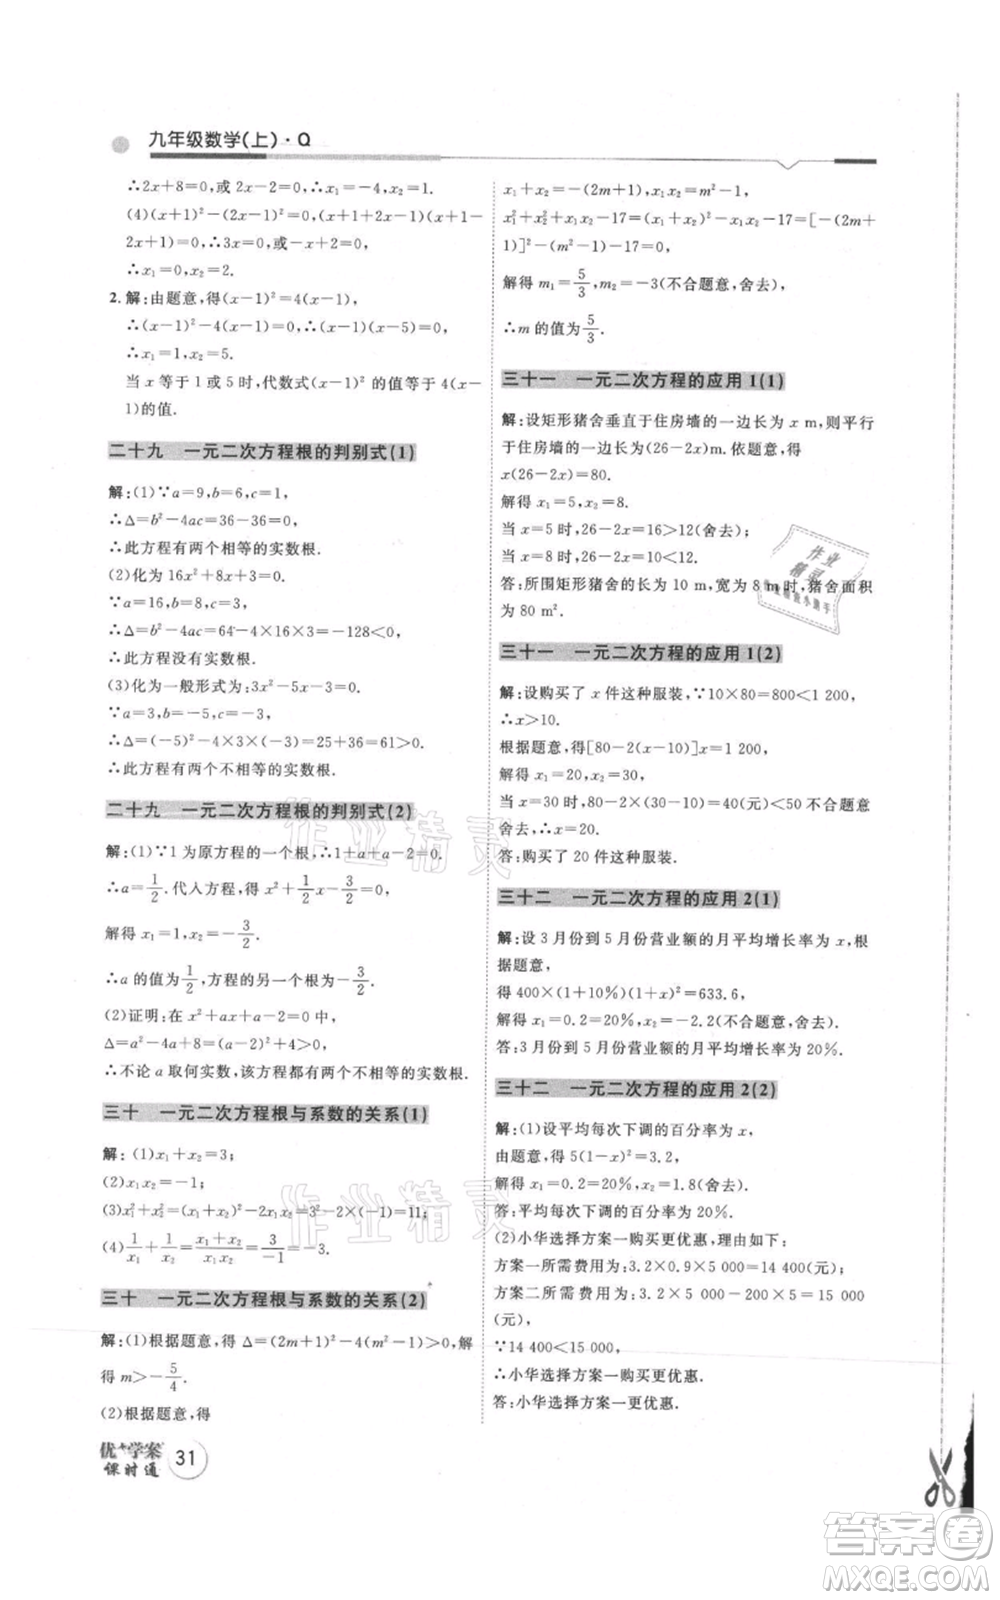 九年级数学(上)·Q
∴2x+8=0,或2x-2=0,∴x₁=-4,x₂=1.
(4)(x+1)²-(2x-1)²=0,(x+1+2x-1)(x+1-
2x+1)=0,∴3x(2-x)=0,
∴x₁=0,x₂=2.
2.解:由题意,得(x-1)²=4(x-1),
∴(x-1)²-4(x-1)=0,∴(x-1)(x-5)=0,
∴x₁=1,x₂=5.
当x等于1或5时,代数式(x-1)²的值等于4(x-
1)的值.
二十九 一元二次方程根的判别式(1)
解:(1)∵a=9,b=6,c=1,
∴Δ=b²-4ac=36-36=0,
∴此方程有两个相等的实数根.
(2)化为16x²+8x+3=0,
∵a=16,b=8,c=3,
∴Δ=b²-4ac=64-4×16×3=-128<0,
∴此方程没有实数根.
(3)化为一般形式为:3x²-5x-3=0,
∵a=3,b=-5,c=-3,
∴Δ=(-5)²-4×3×(-3)=25+36=61>0,
∴此方程有两个不相等的实数根.
二十九 一元二次方程根的判别式(2)
解:(1)∵1为原方程的一个根,∴1+a+a-2=0.
∴a=1/2.代入方程,得x²+1/2x-3/2=0,
解得x₁=1,x₂=-3/2.
∴a的值为1/2,方程的另一个根为-3/2.
(2)证明:在x²+ax+a-2=0中,
Δ=a²-4a+8=(a-2)²+4>0,
∴不论a取何实数,该方程都有两个不相等的实数根.
三十 一元二次方程根与系数的关系(1)
解:(1)x₁+x₂=3;
(2)x₁x₂=-1;
(3)x₁²+x₂²=(x₁+x₂)²-2x₁x₂=3²-2×(-1)=11;
(4)1/x₁+1/x₂=(x₁+x₂)/(x₁x₂)=3/(-1)=-3.
三十 一元二次方程根与系数的关系(2)
解:(1)根据题意,得Δ=(2m+1)²-4(m²-1)>0,解
得m>-5/4.
(2)根据题意,得
x₁+x₂=-(2m+1),x₁x₂=m²-1,
x₁²+x₂²+x₁x₂-17=(x₁+x₂)²-x₁x₂-17=[-(2m+
1)]²-(m²-1)-17=0,
解得m₁=5/3,m₂=-3(不合题意,舍去),
∴m的值为5/3.
三十一 一元二次方程的应用1(1)
解:设矩形猪舍垂直于住房墙的一边长为x m,则平行
于住房墙的一边长为(26-2x)m.依题意,得
x(26-2x)=80.
解得x₁=5,x₂=8.
当x=5时,26-2x=16>12(舍去);
当x=8时,26-2x=10<12.
答:所围矩形猪舍的长为10 m,宽为8 m时,猪舍面积
为80 m².
三十一 一元二次方程的应用1(2)
解:设购买了x件这种服装,∵10×80=800<1 200,
∴x>10.
根据题意,得[80-2(x-10)]x=1 200,
解得x₁=20,x₂=30,
当x=30时,80-2×(30-10)=40(元)<50不合题意
舍去,∴x=20.
答:购买了20件这种服装.
三十二 一元二次方程的应用2(1)
解:设3月份到5月份营业额的月平均增长率为x,根
据题意,
得400×(1+10%)(1+x)²=633.6,
解得x₁=0.2=20%,x₂=-2.2(不合题意,舍去).
答:3月份到5月份营业额的月平均增长率为20%.
三十二 一元二次方程的应用2(2)
解:(1)设平均每次下调的百分率为x,
由题意,得5(1-x)²=3.2,
解得x₁=0.2=20%,x₂=1.8(舍去).
答:平均每次下调的百分率为20%.
(2)小华选择方案一购买更优惠,
方案一所需费用为:3.2×0.9×5 000=14 400(元),
方案二所需费用为:3.2×5 000-200×5=15 000
(元),
∵14 400<15 000,
∴小华选择方案一购买更优惠.
答:小华选择方案一购买更优惠.
优+学案
课时通
31
作业精灵
作业精灵
作业
精灵
答案卷
MXQE.COM